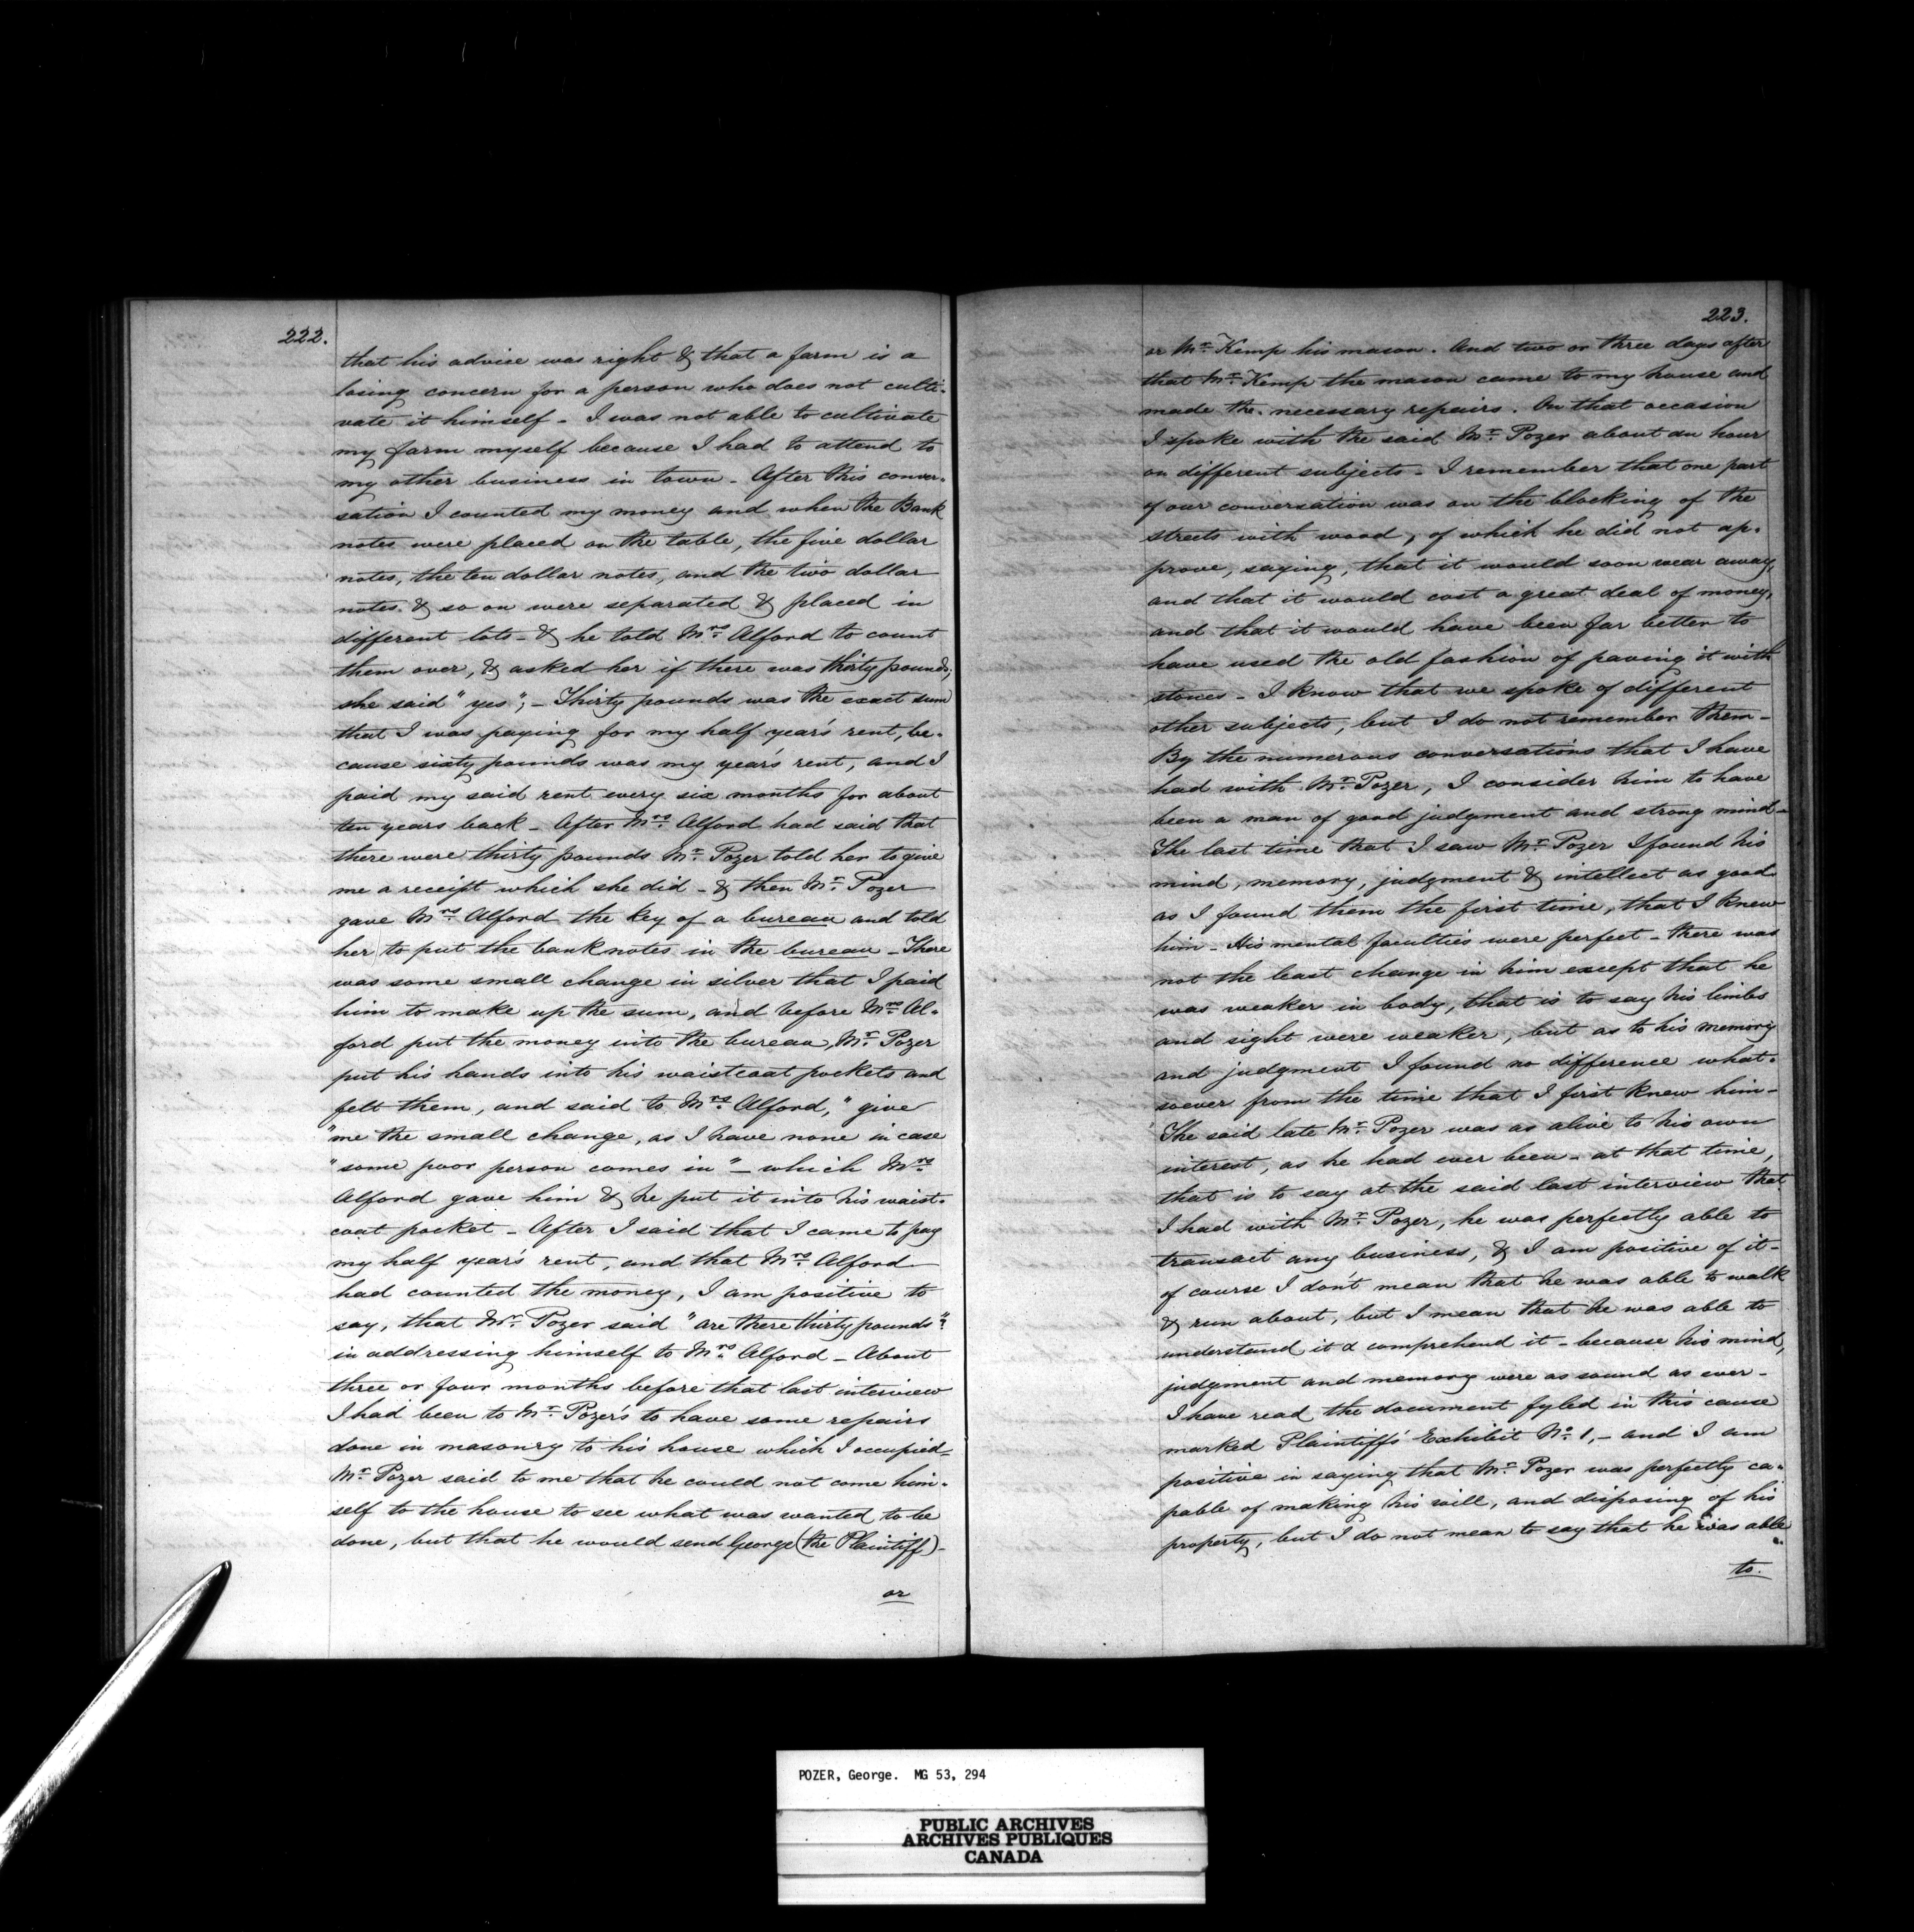 222.
that his advise was right & that a farm is a
losing concern for a person who does not culti-
vate it himself - I was not able to cultivate
my farm myself because I had to attend to
my other business in town - After this conver-
sation I counted my money and when the Bank
notes were placed on the table, the five dollar
notes, the ten dollar notes, and the two dollar
notes & so on were separated & placed in
different lots - & he told Mrs. Alford to count
them over, & asked her if there was thirty pounds,
she said "yes"; - Thirty pounds was the exact sum
that I was paying for my half year's rent, be-
cause sixty pounds was my year's rent, and I
paid my said rent every six months for about
ten years back - After Mrs. Alford had said that
there were thirty pounds Mr. Pozer told her to give
me a receipt which she did - & then Mr. Pozer
gave Mrs. Alford the key of a bureau and told
her to put the bank notes in the bureau - There
was some small change in silver that I paid
him to make up the sum, and before Mrs. Al-
ford put the money into the bureau, Mr. Pozer
put his hands into his waistcoat pockets and
felt them, and said to Mrs. Alford, "give
"me the small change, as I have none in case
"some poor person comes in" - which Mrs.
Alford gave him & he put it into his waist-
coat pocket - After I said that I came to pay
my half year's rent, and that Mrs. Alford
had counted the money, I am positive to
say, that Mr. Pozer said "are there thirty pounds"?
in addressing himself to Mrs. Alford - About
three or four months before that last interview
I had been to Mr. Pozer's to have some repairs
done in masonry to his house which I occupied -
Mr. Pozer said to me that he could not come him-
self to the house to see what was wanted to be
done, but that he would send George (the Plaintiff) -
or
223.
or Mr. Kemp his mason. And two or three days after
that Mr. Kemp the mason came to my house and
made the necessary repairs. On that occasion
I spoke with the said Mr. Pozer about an hour
on different subjects - I remember that one part
of our conversation was on the blocking of the
streets with wood, of which he did not ap-
prove, saying, that it would soon wear away,
and that it would cost a great deal of money,
and that it would have been far better to
have used the old fashion of paving it with
stones - I know that we spoke of different
other subjects, but I do not remember them -
By the numerous conversations that I have
had with Mr. Pozer, I consider him to have
been a man of good judgment and strong mind -
The last time that I saw Mr. Pozer I found his
mind, memory, judgment & intellect as good
as I found them the first time, that I knew
him - His mental faculties were perfect - there was
not the least change in him except that he
was weaker in body, that is to say his limbs
and sight were weaker, but as to his memory
and judgment I found no difference what-
soever from the time that I first knew him -
The said late Mr. Pozer was as alive to his own
interest, as he had ever been - at that time,
that is to say at the said last interview that
I had with Mr. Pozer, he was perfectly able to
transact any business, & I am positive of it -
of course I don't mean that he was able to walk
& run about, but I mean that he was able to
understand it & comprehend it - because his mind,
judgment and memory were as sound as ever -
I have read the document fyled in this cause
marked Plaintiff's Exhibit No. 1, - and I am
positive in saying that Mr. Pozer was perfectly ca-
pable of making his will, and disposing of his
property, but I do not mean to say that he was able
to.
POZER, George. MG 53, 294
PUBLIC ARCHIVES
ARCHIVES PUBLIQUES
CANADA